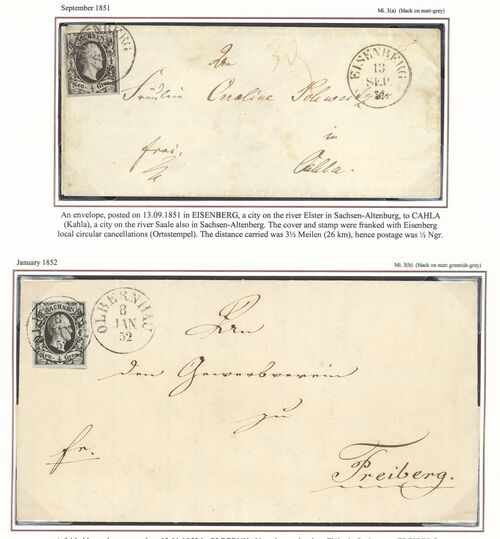 September 1851
Mi. 3(a) (black on matt-grey)
SACHSEN
Neu- ½ Grosch.
EISENBERG
EISENBERG
13
SEP.
51
An
Fräulein Caroline
in
Cahla.
frei.
An envelope, posted on 13.09.1851 in EISENBERG, a city on the river Elster in Sachsen-Altenburg, to CAHLA
(Kahla), a city on the river Saale also in Sachsen-Altenburg. The cover and stamp were franked with Eisenberg
local circular cancellations (Ortsstempel). The distance carried was 3½ Meilen (26 km), hence postage was ½ Ngr.
January 1852
Mi. 3(b) (black on matt greenish-grey)
SACHSEN
Neu- ½ Grosch.
OLBERNHAU
8
JAN.
52
An
den Gewerbverein
zu
Freiberg.
fr.